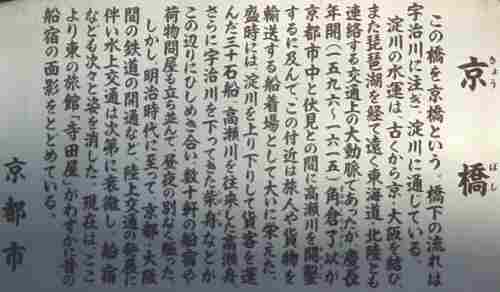 京橋
きょう ば
この橋を京橋という。橋下の流れは
宇治川に注ぎ、淀川に通じている。
淀川の水運は、古くから京・大阪を結び、
また琵琶湖を経て遠く東海道、北陸とも
連絡する交通上の大動脈であったが、慶長
年間(一五九六〜一六一五)角倉了以が
京都市中と伏見との間に高瀬川を開鑿
するに及んで、この付近は旅人や貨物を
輸送する船着場として大いに栄えた。
盛時には、淀川を上り下りして貨客を運
んだ三十石船、高瀬川を往来した高瀬舟、
さらに宇治川を下ってきた柴舟などが
この辺りにひしめき合い、数十軒の船宿や
荷物問屋も立ち並んで、昼夜の別なく賑った。
しかし、明治時代に至って、京都・大阪
間の鉄道の開通など、陸上交通の発展に
伴い水上交通は次第に衰微し、船宿
なども次々と姿を消した。現在は、ここ
より東の旅館「寺田屋」がわずかに昔の
船宿の面影をとどめている。
京都市